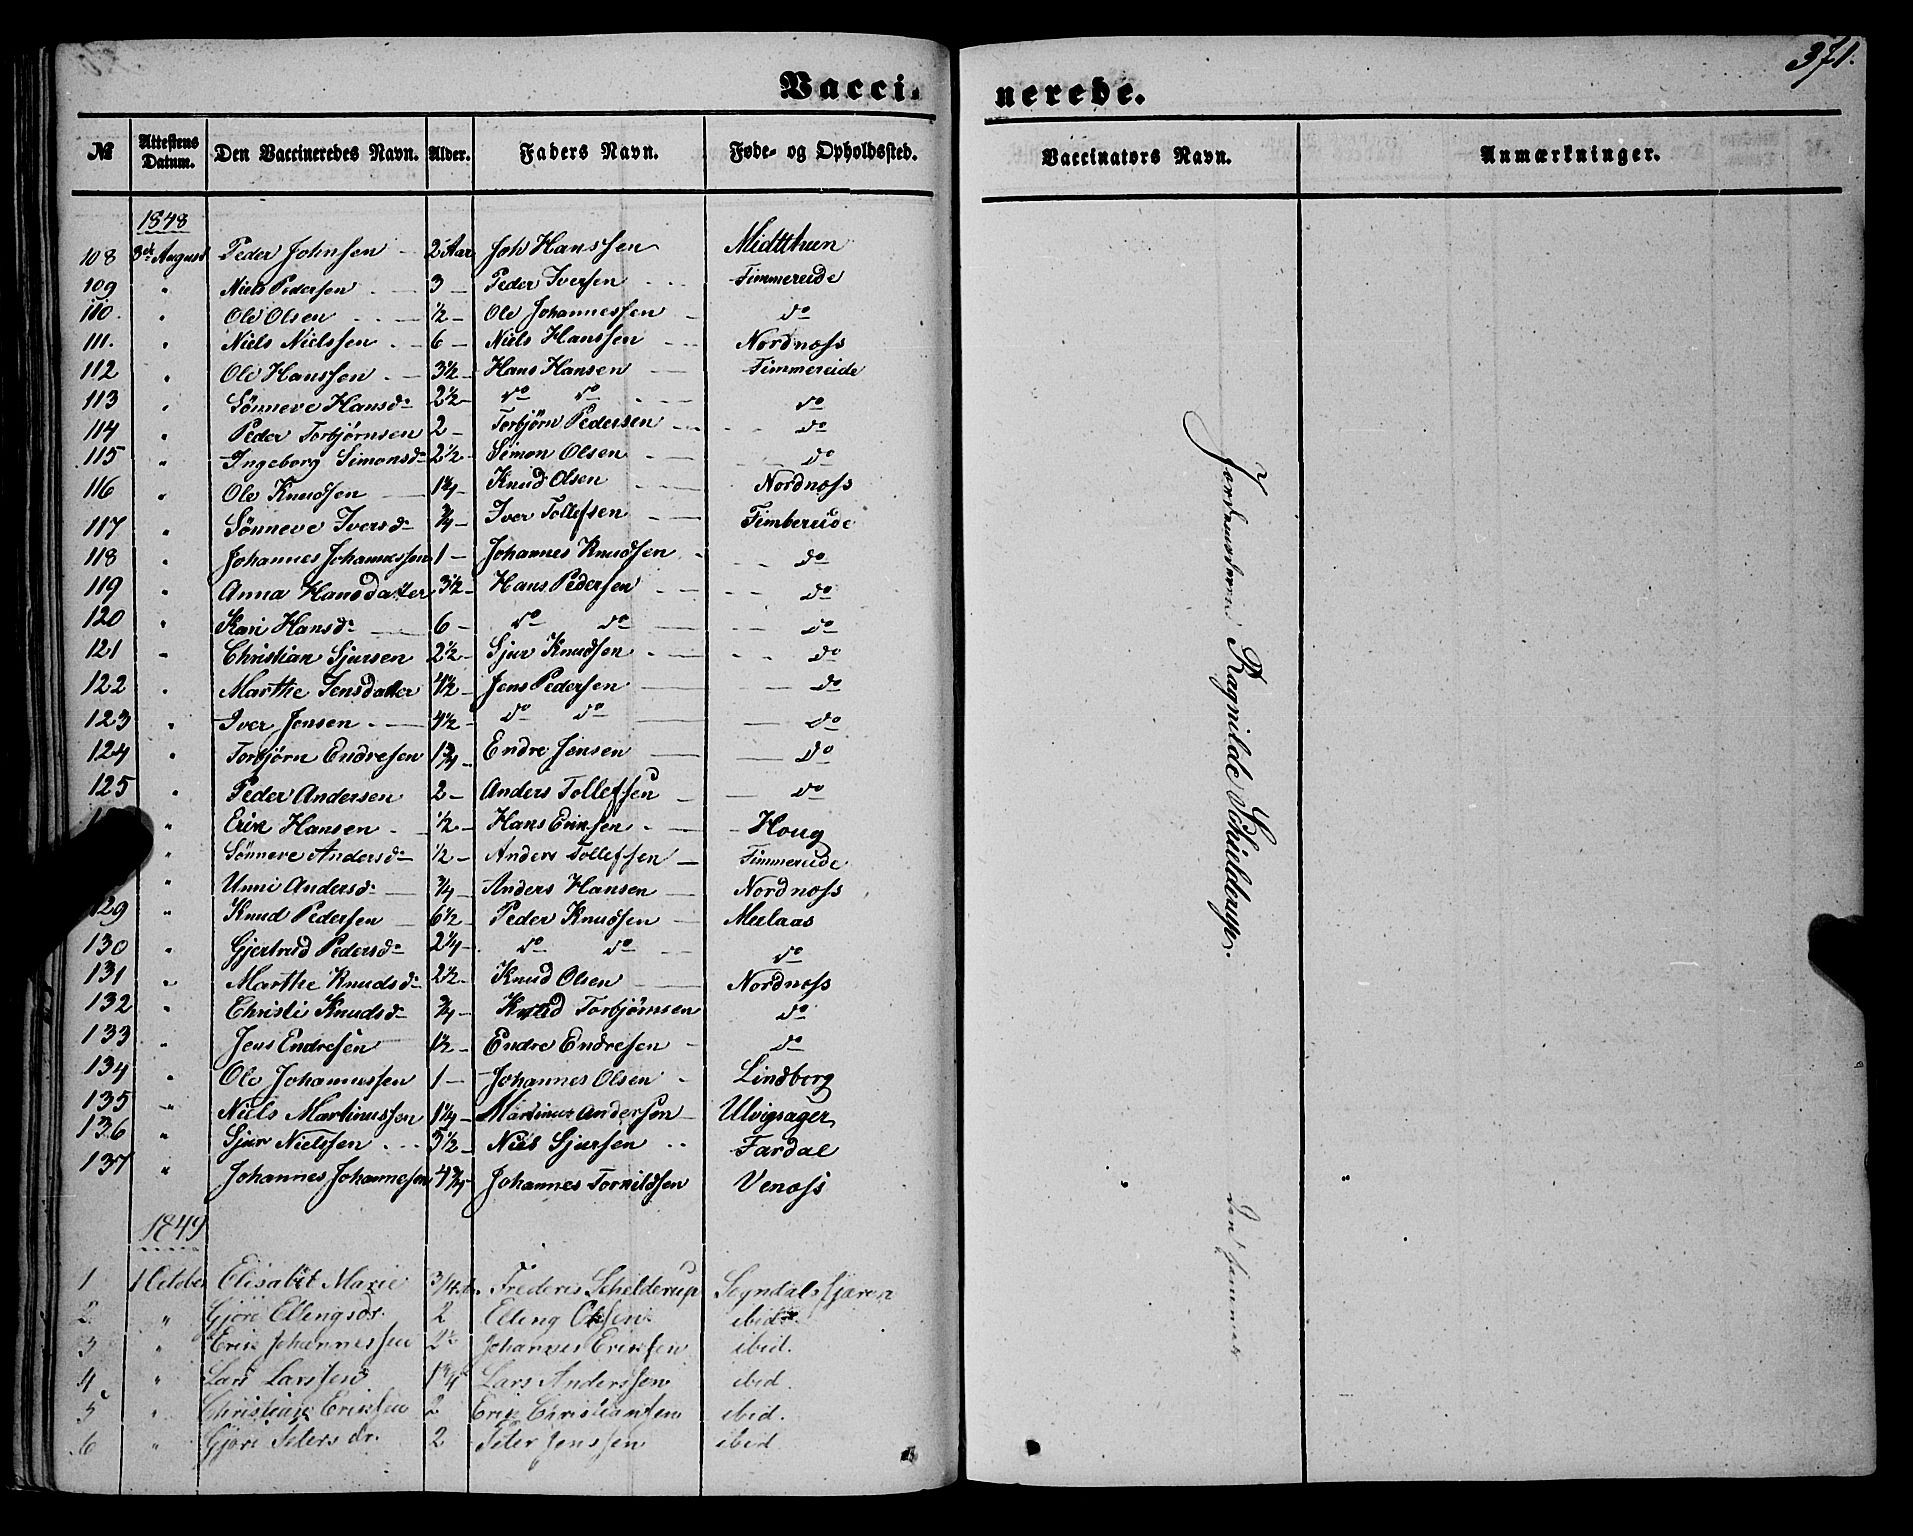 371.
Vacci- nerede.
№ Attestens Datum. Den Vaccineredes Navn. Alder. Faders Navn. Føde- og Opholdssted. Vaccinators Navn. Anmærkninger.
1848
108 3de August Peder Johnsen 2 Aar Joh Hanssen Midtthun
109 " Niels Pedersen 3 Peder Iversen Timmereide
110. " Ole Olsen ½ Ole Johannessen do
111. " Niels Nielssen 6 Niels Hanssen Nordnæss
112 " Ole Hanssen 3½ Hans Hansen Timmereide
113 " Sønneve Hansdr 2½ do do do
114 " Peder Torbjørnsen 2 Torbjørn Pedersen do
115 " Ingeborg Simonsdr 2½ Simon Olsen do
116 " Ole Knudsen 1¼ Knud Olsen Nordnæss
117 " Sønneve Iversdr ¾ Iver Tollefsen Timbereide
118 " Johannes Johannessen 1 Johannes Knudsen do
119 " Anna Hansdatter 3½ Hans Pedersen do
120 " Kari Hansdr 6 do do do
121 " Christian Sjursen 2½ Sjur Knudsen do
122 " Marthe Jensdatter 4½ Jens Pedersen do
123 " Iver Jensen 4½ do do do
124 " Torbjørn Endresen 1¾ Endre Jensen do
125 " Peder Andersen 2 Anders Tollefsen do
" Erik Hansen ½ Hans Eriksen Houg
" Sønneve Andersdr ½ Anders Tollefsen Timmereide
" Unni Andersdr ¾ Anders Hansen Nordnæss
129 " Knud Pedersen 6½ Peder Knudsen Meelaas
130 " Gjertrud Pedersdr 2¼ do do do
131 " Marthe Knudsdr 2½ Knud Olsen Nordnæss
132 " Christi Knudsdr ¾ Knud Torbjørnsen do
133 " Jens Endresen 1½ Endre Endresen do
134 " Ole Johannessen 1 Johannes Olsen Lindborg
135 " Niels Martinussen 1¼ Martinus Andersen Ulvigsager
136 " Sjur Nielssen 5½ Niels Sjursen Fardal
137 " Johannes Johannesen 4¾ Johannes Tornildsen Venæss
Jordemoderen Ragnilde Schielderup.
1849
1 1 October Elisabet Marie 3/4 Frederis Schelderup Sogndalsfjæren
2 " Gjøri Ellingsdr. 2 Elling Olsen ibid.
3 " Erik Johannessen 2½ Johannes Eriksen ibid.
4 " Lars Larssen 1¾ Lars Anderssen ibid.
5 " Christian Eriksen 2 Erik Christiansen ibid.
6 " Gjøri Petersdr. 2 Peter Jenssen ibid